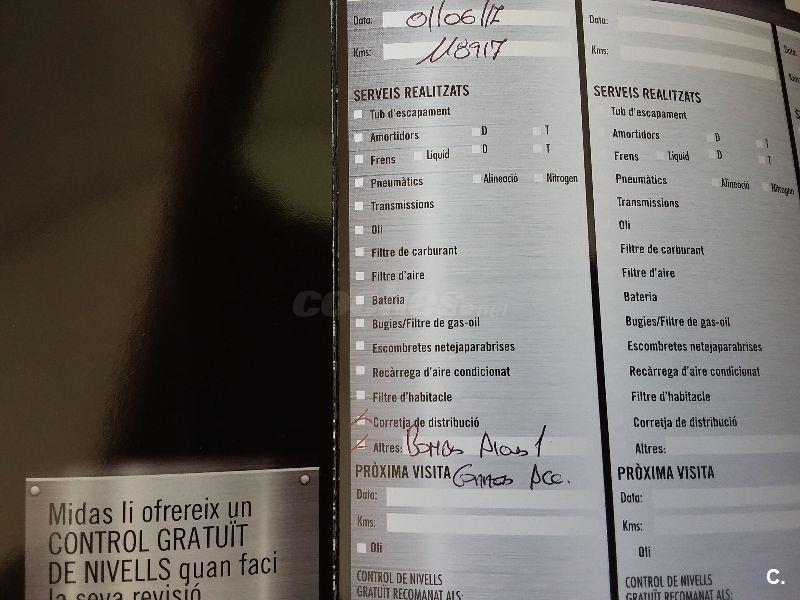 Data: 01/06/17
Kms: 118917
SERVEIS REALITZATS
Tub d'escapament
Amortidors D T
Frens Líquid D T
Pneumàtics Alineació Nitrogen
Transmissions
Oli
Filtre de carburant
Filtre d'aire
Bateria
Bugies/Filtre de gas-oil
Escombretes netejaparabrises
Recàrrega d'aire condicionat
Filtre d'habitacle
Corretja de distribució
Altres:
PRÒXIMA VISITA
Data:
Kms:
Oli
CONTROL DE NIVELLS
GRATUÏT RECOMANAT ALS:
Data:
Kms:
SERVEIS REALITZATS
Tub d'escapament
Amortidors D T
Frens Líquid D T
Pneumàtics Alineació Nitrogen
Transmissions
Oli
Filtre de carburant
Filtre d'aire
Bateria
Bugies/Filtre de gas-oil
Escombretes netejaparabrises
Recàrrega d'aire condicionat
Filtre d'habitacle
Corretja de distribució
Altres:
PRÒXIMA VISITA
Data:
Kms:
Oli
CONTROL DE NIVELLS
GRATUÏT RECOMANAT ALS:
Midas li ofrereix un
CONTROL GRATUÏT
DE NIVELLS quan faci
la seva revisió
C.